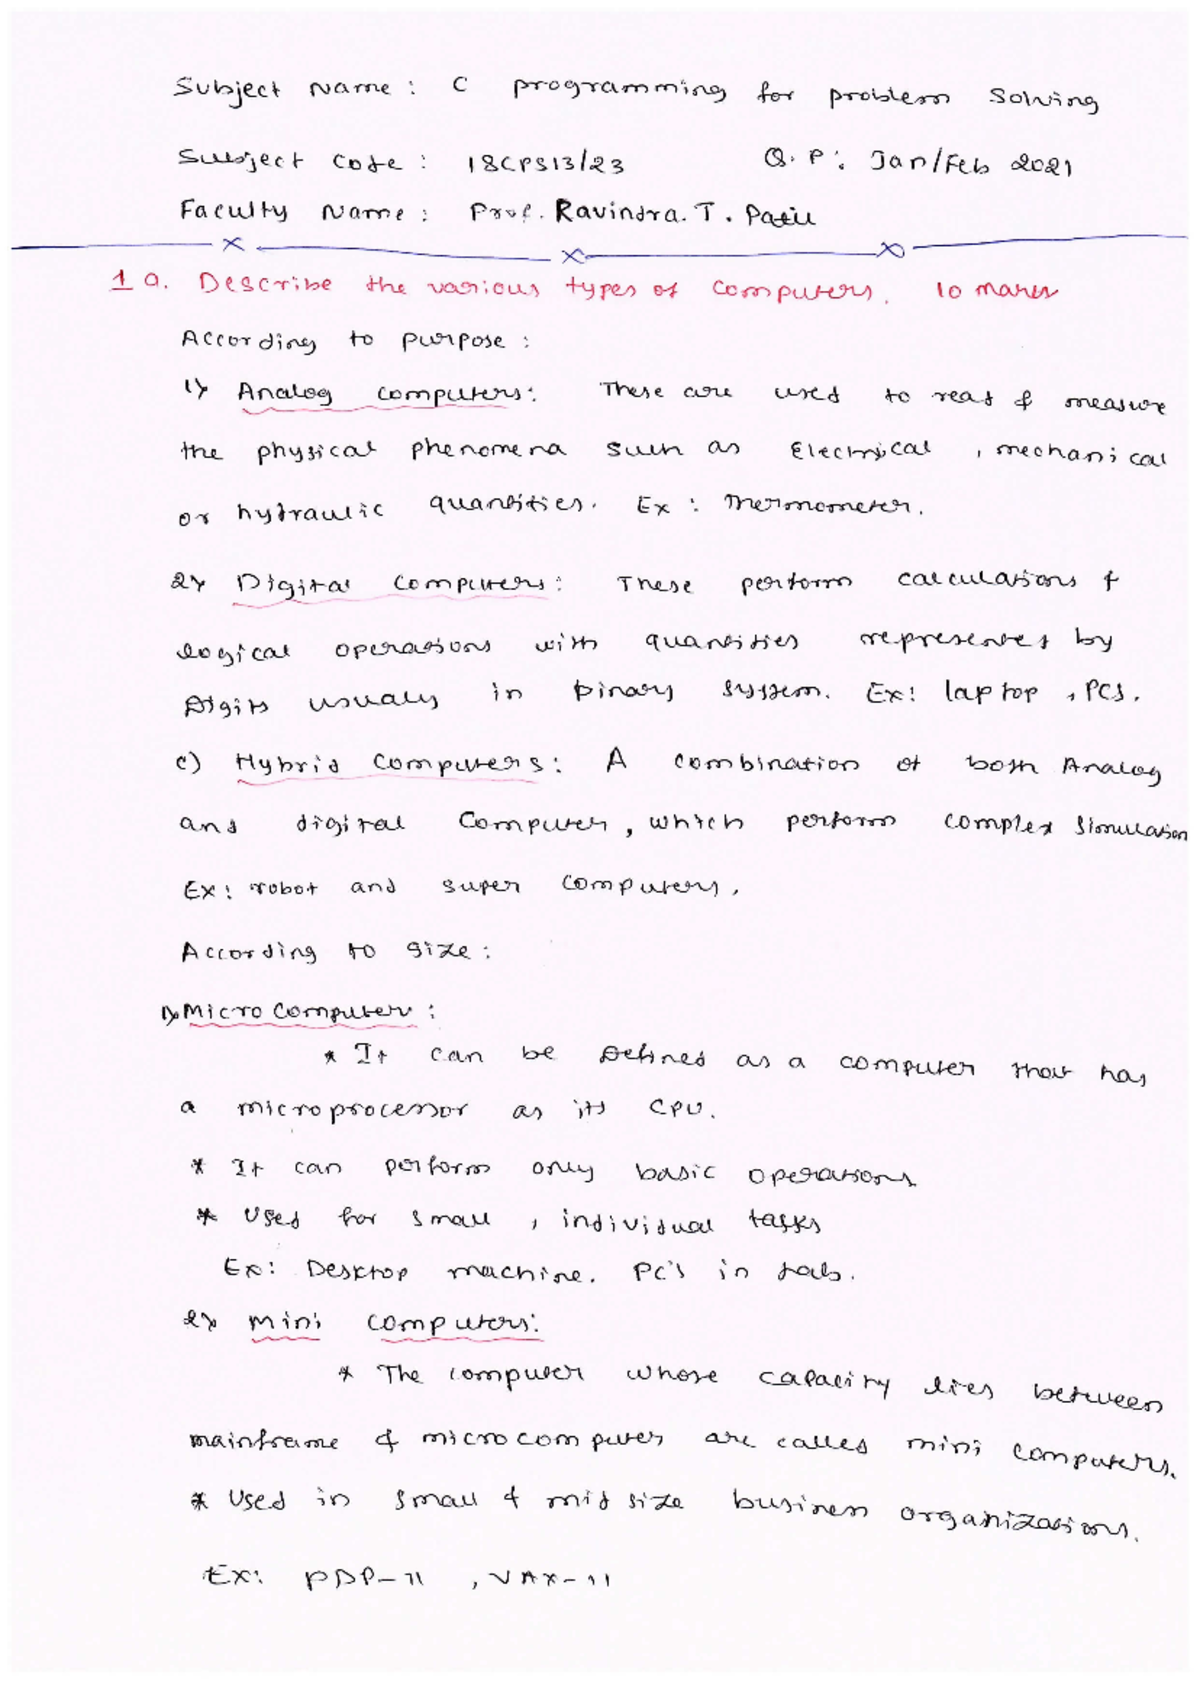 Subject Name: C programming for problem Solving
Subject Code: 18CPS13/23 Q.P: Jan/Feb 2021
Faculty Name: Prof. Ravindra.T. Patil
1 a. Describe the various types of computers. 10 marks
According to purpose:
1) Analog computers: These are used to read & measure
the physical phenomena such as Electrical, mechanical
or hydraulic quantities. Ex: Thermometer.
2) Digital computers: These perform calculations &
logical operations with quantities represented by
Digits usually in binary system. Ex: laptop, PCs.
c) Hybrid Computers: A combination of both Analog
and digital Computer, which perform complex simulation
Ex: robot and super computers.
According to size:
1) Micro Computer:
* It can be Defined as a computer that has
a microprocessor as its CPU.
* It can perform only basic operations
* Used for small, individual tasks
Ex: Desktop machine. PC's in lab.
2) Mini Computers:
* The computer whose capacity lies between
mainframe & microcomputer are called mini computers.
* Used in small & mid size business organizations.
Ex: PDP-11, VAX-11